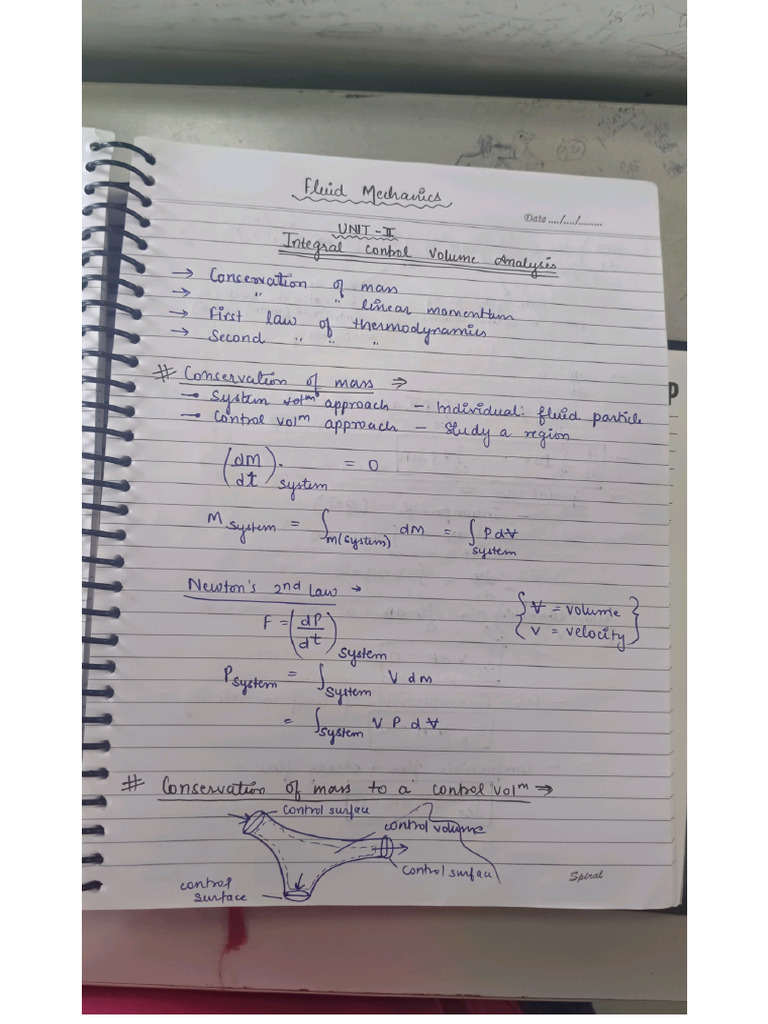 Fluid Mechanics
Date ..../..../.........
UNIT-II
Integral control volume Analysis
→ Conservation of mass
→ " " linear momentum
→ First law of thermodynamics
→ Second " " "
# Conservation of mass ⇒
→ System volᵐ approach - Individual: fluid particle
→ Control volᵐ approach - Study a region
(dM/dt)system = 0
M system = ∫m(system) dM = ∫system P dV̶
Newton's 2nd Law →
{V̶ = volume
v = velocity}
F = (dP/dt)system
P system = ∫system V dm
= ∫system V P d V̶
# Conservation of mass to a control volᵐ ⇒
control surfau
control volume
control surfau
control
surface
Spiral
P